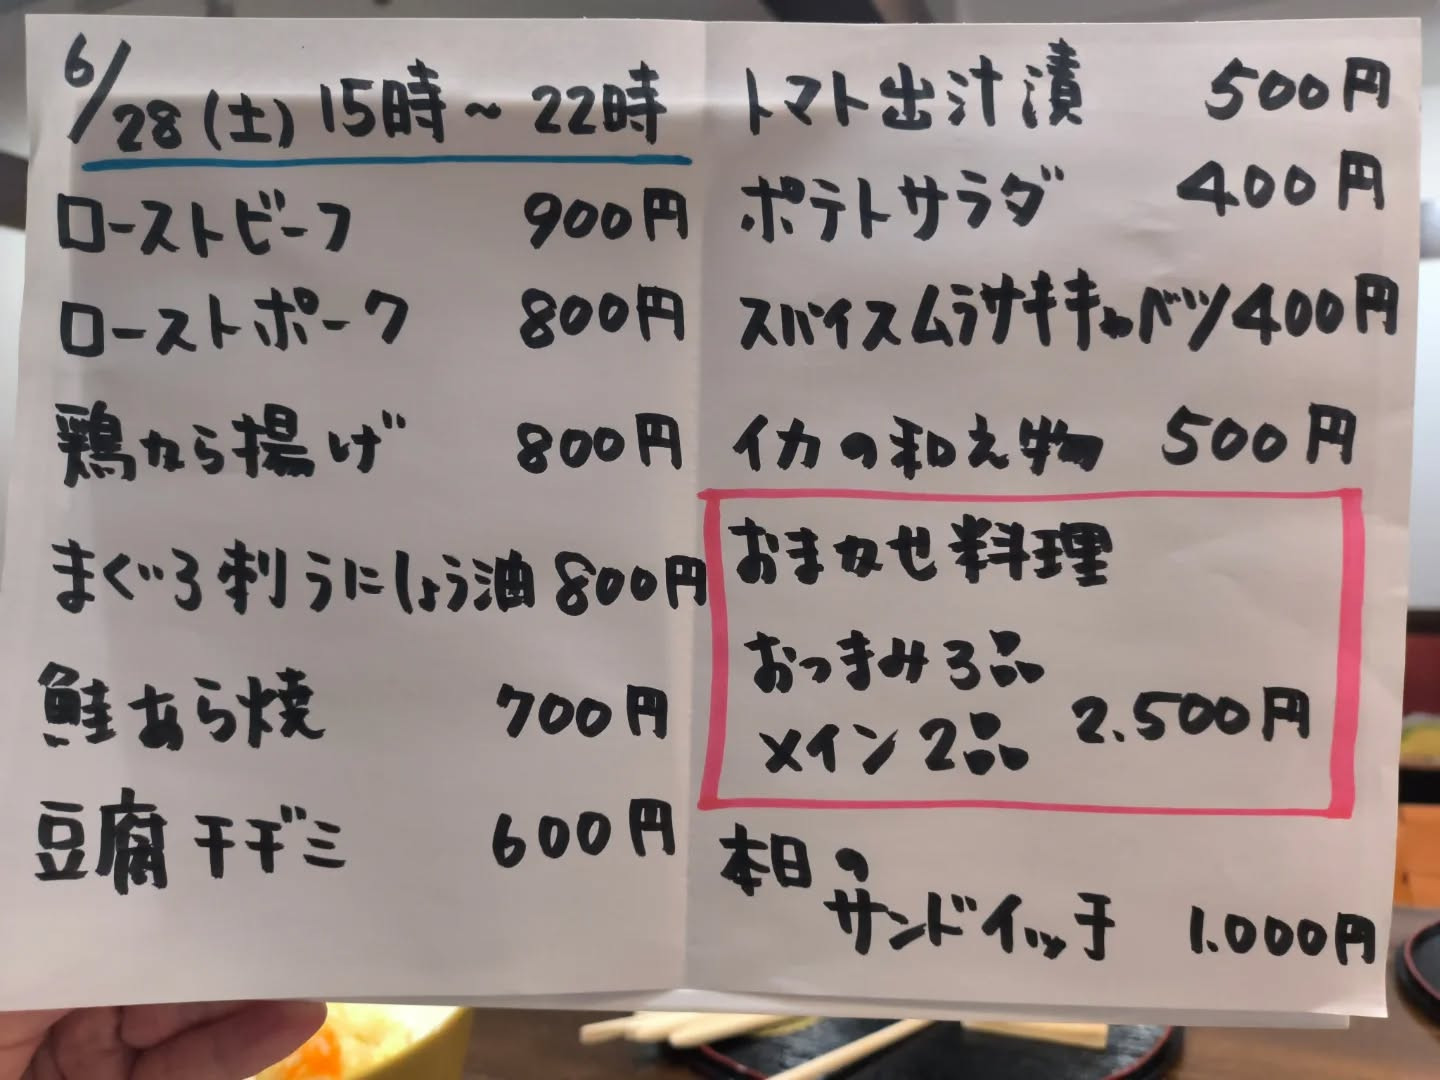 6/28(土)15時~22時
ローストビーフ 900円
ローストポーク 800円
鶏から揚げ 800円
まぐろ刺うにしょう油 800円
鮭あら焼 700円
豆腐チヂミ 600円
トマト出汁漬 500円
ポテトサラダ 400円
スパイスムラサキキャベツ 400円
イカの和え物 500円
おまかせ料理
おつまみ3品
メイン2品 2.500円
本日の
サンドイッチ 1.000円